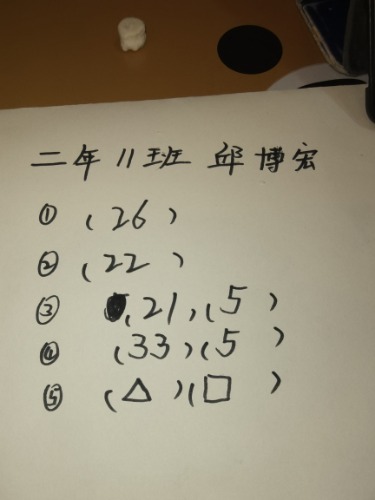 二年11班 邱博宏
① (26)
② (22)
③ (21)(5)
④ (33)(5)
⑤ (△)(□)